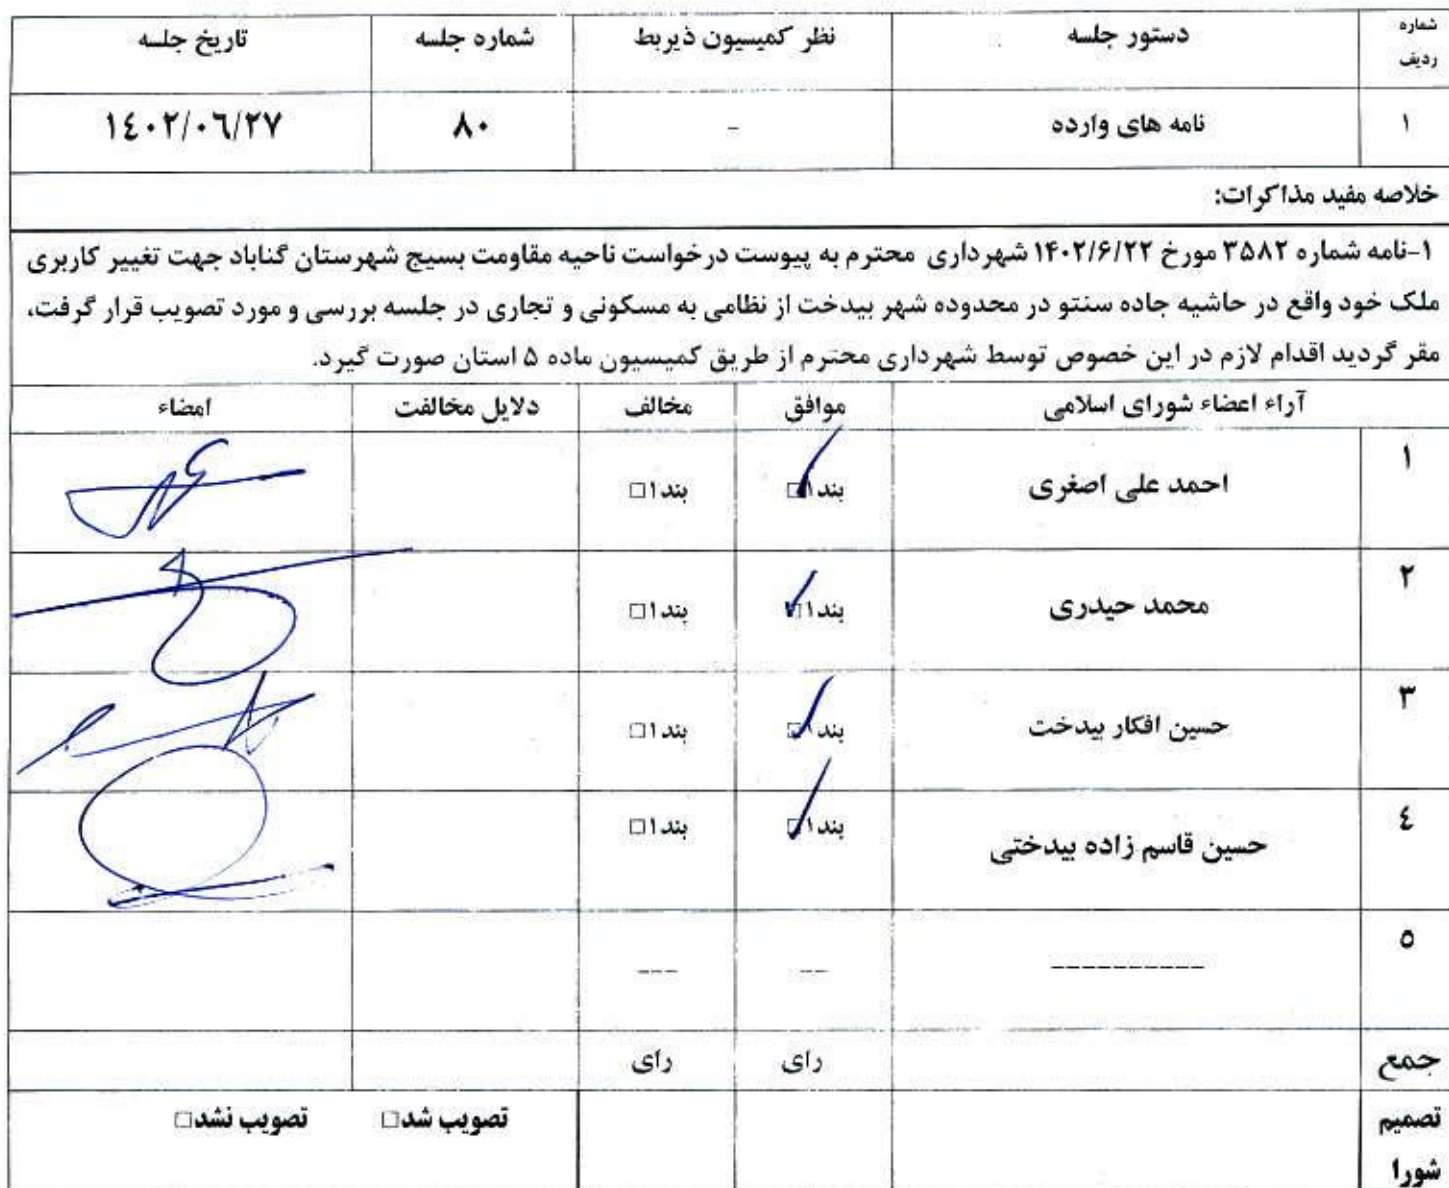 شماره ردیف	دستور جلسه	نظر کمیسیون ذیربط	شماره جلسه	تاریخ جلسه
۱	نامه های وارده	-	۸۰	۱٤۰۲/۰٦/۲۷
خلاصه مفید مذاکرات:
۱-نامه شماره ۳۵۸۲ مورخ ۱۴۰۲/۶/۲۲ شهرداری محترم به پیوست درخواست ناحیه مقاومت بسیج شهرستان گناباد جهت تغییر کاربری
ملک خود واقع در حاشیه جاده سنتو در محدوده شهر بیدخت از نظامی به مسکونی و تجاری در جلسه بررسی و مورد تصویب قرار گرفت،
مقر گردید اقدام لازم در این خصوص توسط شهرداری محترم از طریق کمیسیون ماده ۵ استان صورت گیرد.
آراء اعضاء شورای اسلامی	موافق	مخالف	دلایل مخالفت	امضاء
۱	احمد علی اصغری	بند۱☐	بند۱☐
۲	محمد حیدری	بند۱☐	بند۱☐
۳	حسین افکار بیدخت	بند۱☐	بند۱☐
٤	حسین قاسم زاده بیدختی	بند۱☐	بند۱☐
۵	-----------	--	---
جمع	رای	رای
تصمیم شورا	تصویب شد☐	تصویب نشد☐